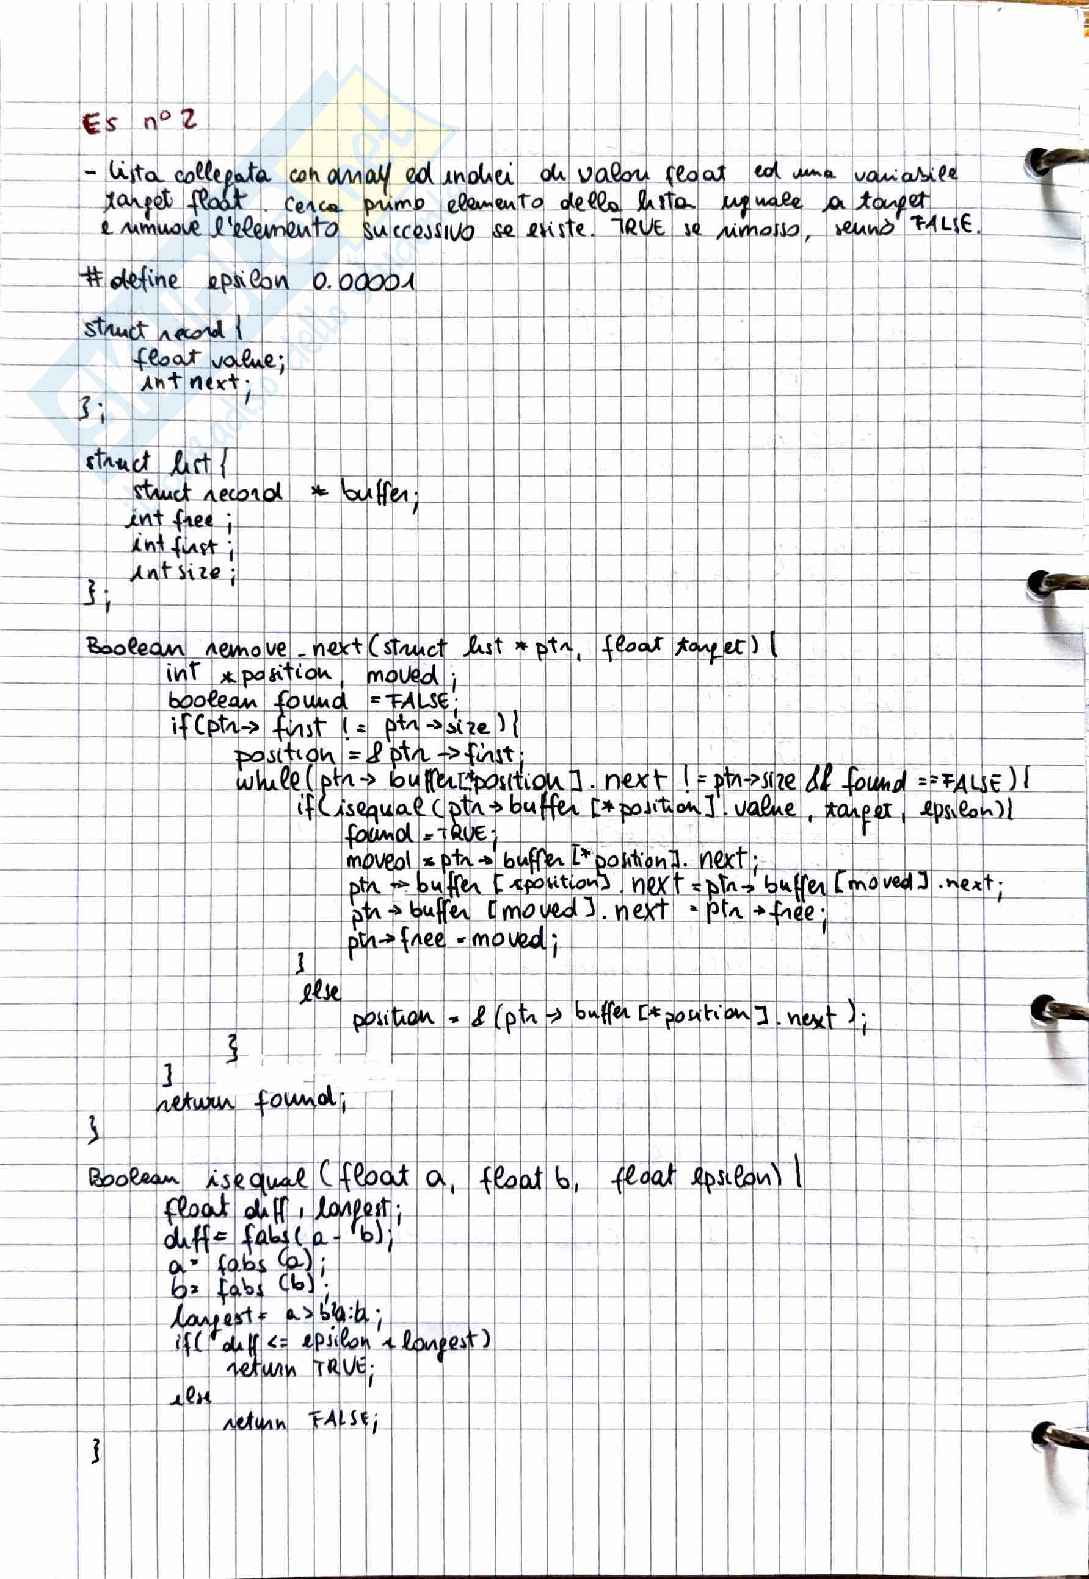 Es n° 2
- lista collegata con array ed indici di valori float ed una variabile
target float. Cerca primo elemento della lista uguale a target
e rimuove l'elemento successivo se esiste. TRUE se rimosso, sennò FALSE.
#define epsilon 0.00001
struct record{
float value;
int next;
};
struct list{
struct record * buffer;
int free;
int first;
int size;
};
Boolean remove_next(struct list * ptr, float target){
int *position, moved;
boolean found = FALSE;
if(ptr-> first != ptr->size){
position = & ptr->first;
while(ptr-> buffer[*position].next != ptr->size && found == FALSE){
if(isequal(ptr->buffer[*position].value, target, epsilon){
found = TRUE;
moved = ptr-> buffer[*position].next;
ptr -> buffer [*position].next = ptr-> buffer [moved].next;
ptr-> buffer [moved].next = ptr->free;
ptr->free = moved;
}
else
position = &(ptr-> buffer[*position].next);
}
}
return found;
}
Boolean isequal (float a, float b, float epsilon){
float diff, largest;
diff = fabs(a - b);
a = fabs (a);
b = fabs (b);
largest = a>b?a:b;
if( diff <= epsilon * largest)
return TRUE;
else
return FALSE;
}